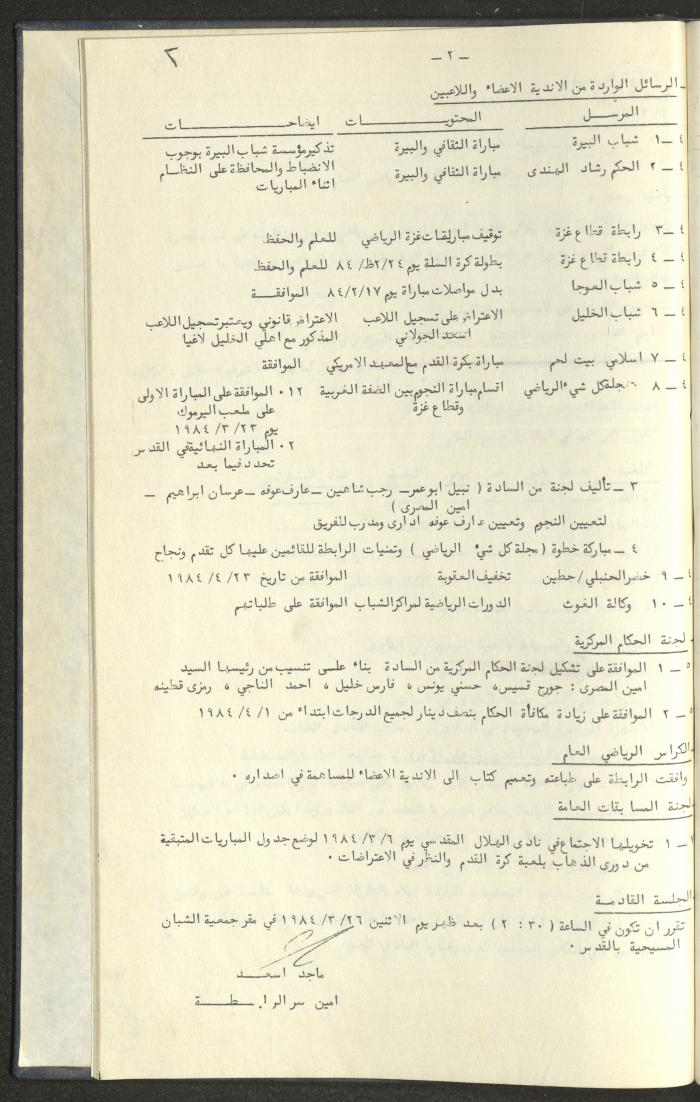 - ٢ -
٢
ـ الرسائل الواردة من الاندية الاعضاء واللاعبين
المرسل المحتويات ايضاحات
٤ ـ ١ شباب البيرة مباراة الثقافي والبيرة تذكير مؤسسة شباب البيرة بوجوب
٤ ـ ٢ الحكم رشاد الهندى مباراة الثقافي والبيرة الانضباط والمحافظة على النظام
اثناء المباريات
٤ ـ ٣ رابطة قطاع غزة توقيف مباريات غزة الرياضي للعلم والحفظ
٤ ـ ٤ رابطة قطاع غزة بطولة كرة السلة يوم ٢/٢٤/ ٨٤ للعلم والحفظ
٤ ـ ٥ شباب العوجا بدل مواصلات مباراة يوم ٨٤/٢/١٧ الموافقة
٤ ـ ٦ شباب الخليل الاعتراض على تسجيل اللاعب الاعتراض قانوني ويعتبر تسجيل اللاعب
اسعد الجولاني المذكور مع اهلي الخليل لاغيا
٤ ـ ٧ اسلامي بيت لحم مباراة بكرة القدم مع المعهد الامريكي الموافقة
٤ ـ ٨ مجلة كل شيء الرياضي اقسام مباراة النجوم بين الضفة الغربية ١٢ . الموافقة على المباراة الاولى
وقطاع غزة على ملعب اليرموك
يوم ٢٣/ ٣/ ١٩٨٤
٢ . المباراة النهائية في القدس
تحدد فيما بعد
٣ ـ تأليف لجنة من السادة ( نبيل ابو عمر ـ رجب شاهين ـ عارف عوفه ـ عرسان ابراهيم ـ
امين المصرى )
لتعيين النجوم وتعيين عارف عوفه ادارى ومدرب للفريق
٤ ـ مباركة خطوة ( مجلة كل شيء الرياضي ) وتمنيات الرابطة للقائمين عليها كل تقدم ونجاح
٤ ـ ٩ خضر الحنبلي/حطين تخفيف العقوبة الموافقة من تاريخ ٢٣/ ٤/ ١٩٨٤
٤ ـ ١٠ وكالة الغوث الدورات الرياضية لمراكز الشباب الموافقة على طلباتهم
لجنة الحكام المركزية
٥ ـ ١ الموافقة على تشكيل لجنة الحكام المركزية من السادة بناء على تنسيب من رئيسها السيد
امين المصرى : جورج قسيس، حسني يونس، فارس خليل، احمد الناجي، رمزى قطينه
٥ ـ ٢ الموافقة على زيادة مكافأة الحكام بنصف دينار لجميع الدرجات ابتداء من ١/ ٤/ ١٩٨٤
الكراس الرياضي العام
وافقت الرابطة على طباعته وتعميم كتاب الى الاندية الاعضاء للمساهمة في اصداره .
لجنة المسابقات العامة
١ ـ ١ تخويلها الاجتماع في نادى الهلال المقدسي يوم ٦/ ٣/ ١٩٨٤ لوضع جدول المباريات المتبقية
من دورى الذهاب بلعبة كرة القدم والنظر في الاعتراضات .
الجلسة القادمة
تقرر ان تكون في الساعة ( ٣٠ : ٢ ) بعد ظهر يوم الاثنين ٢٦/ ٣/ ١٩٨٤ في مقر جمعية الشبان
المسيحية بالقدس .
ماجد اسعد
امين سر الرابطة